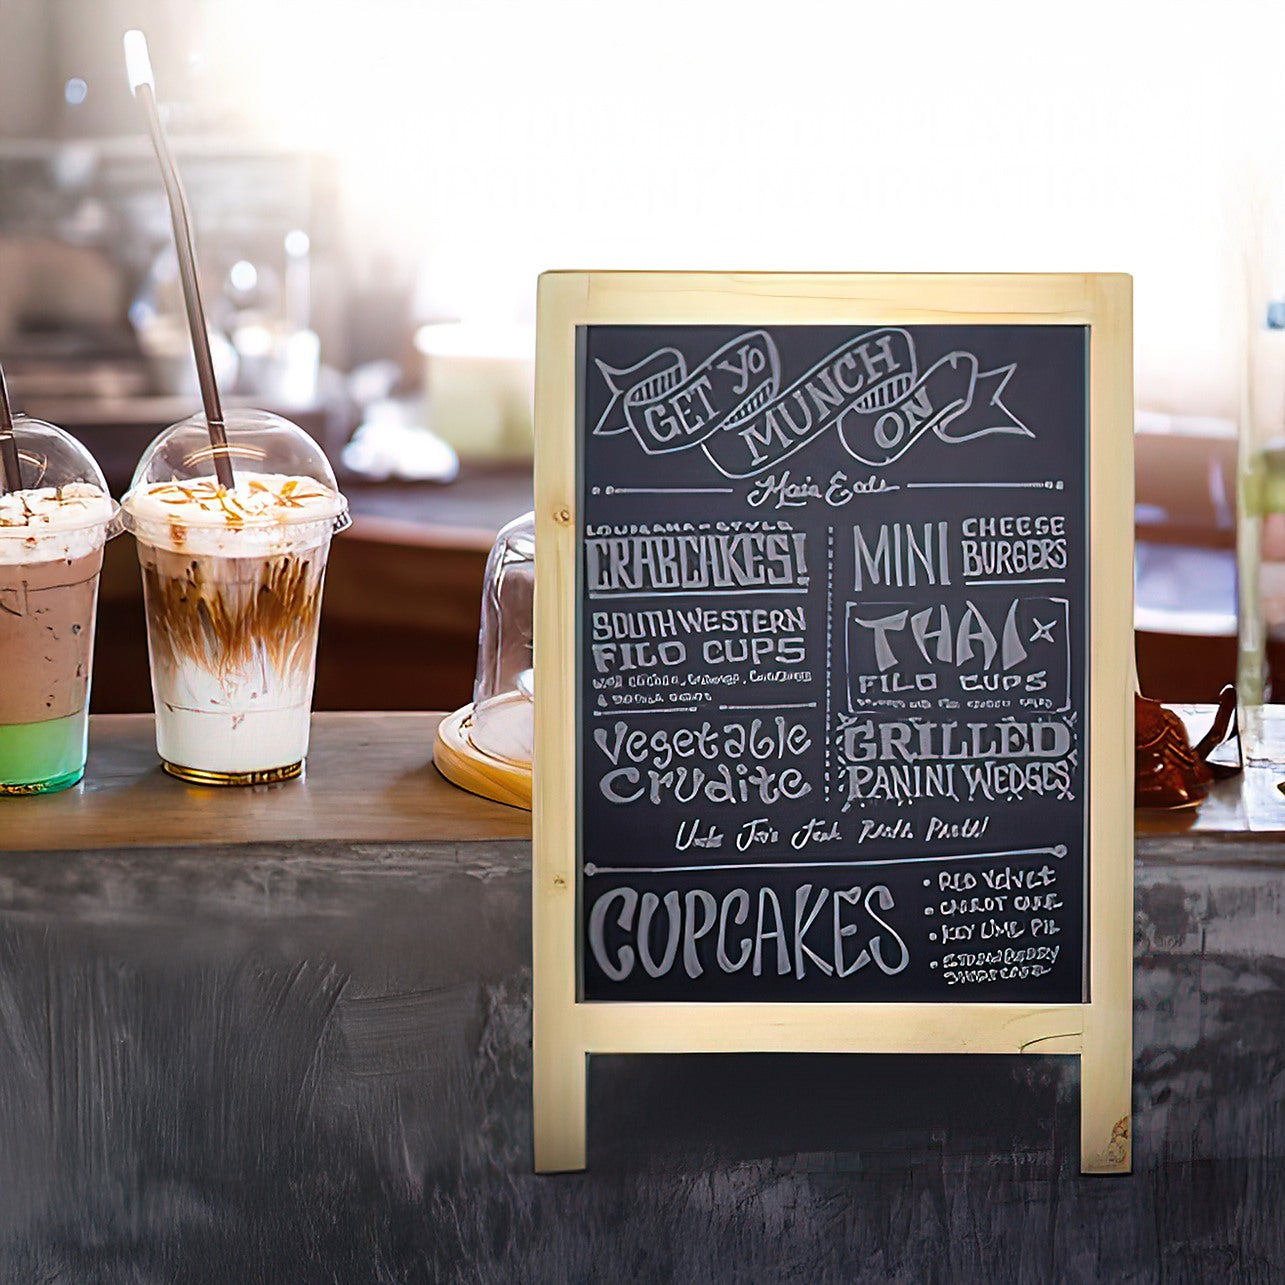 GET YO
MUNCH
ON
Main Eats
LOUISIANA-STYLE
CRABCAKES!
SOUTHWESTERN
FILO CUPS
Vegetable
Crudite
MINI CHEESE
BURGERS
THAI
FILO CUPS
GRILLED
PANINI WEDGES
CUPCAKES
• RED VELVET
• CARROT CAKE
• KEY LIME PIE
• STRAWBERRY
SHORTCAKE